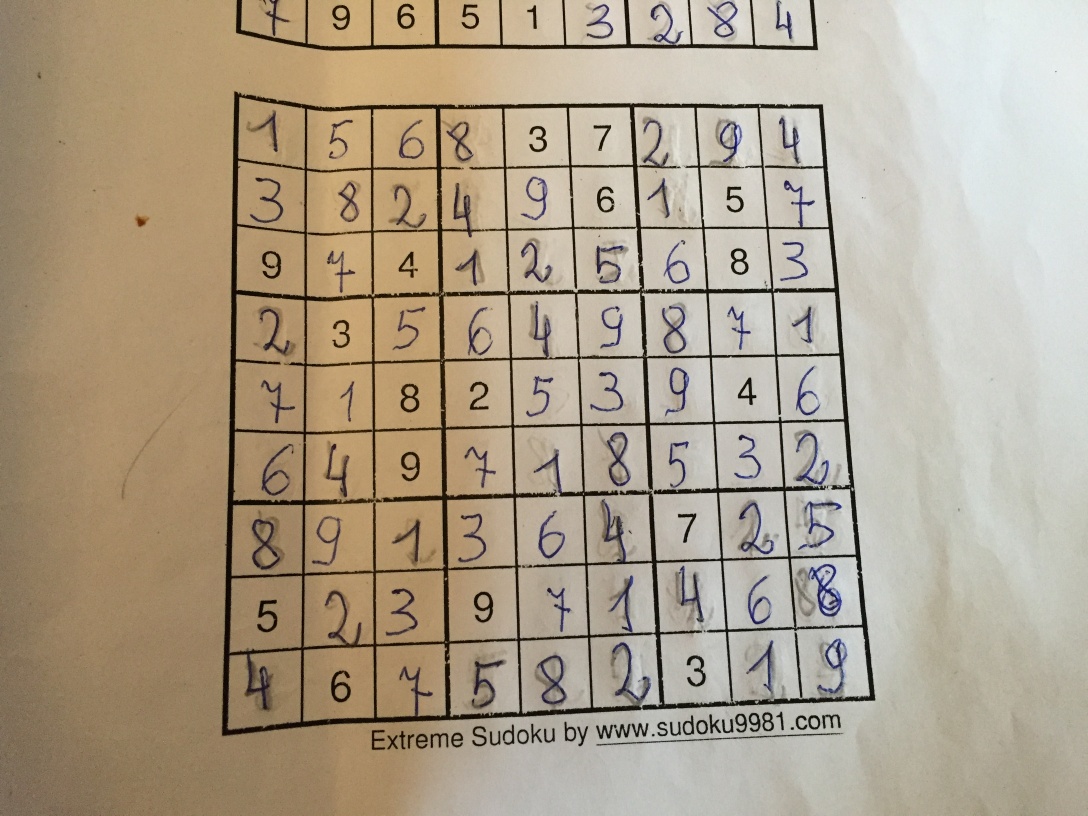 7 9 6 5 1 3 2 8 4
1 5 6 8 3 7 2 9 4
3 8 2 4 9 6 1 5 7
9 7 4 1 2 5 6 8 3
2 3 5 6 4 9 8 7 1
7 1 8 2 5 3 9 4 6
6 4 9 7 1 8 5 3 2
8 9 1 3 6 4 7 2 5
5 2 3 9 7 1 4 6 8
4 6 7 5 8 2 3 1 9
Extreme Sudoku by www.sudoku9981.com